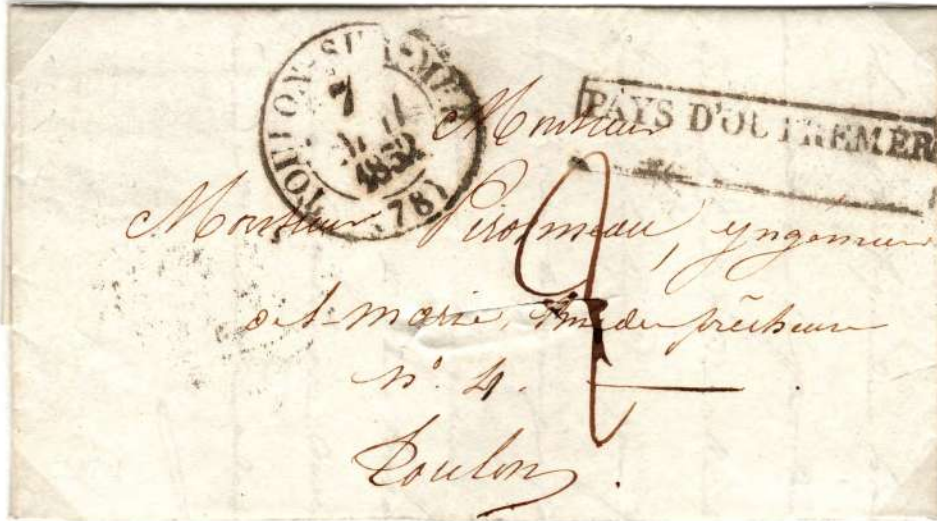 TOULON-SUR-MER
7
1852
(78)
PAYS D'OUTREMER
Monsieur
Monsieur Pironneau, yngénieur
de la marine, rue des prêcheurs
n° 4.
Toulon.
2